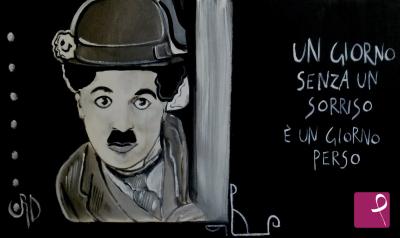 UN GIORNO
SENZA UN
SORRISO
È UN GIORNO
PERSO